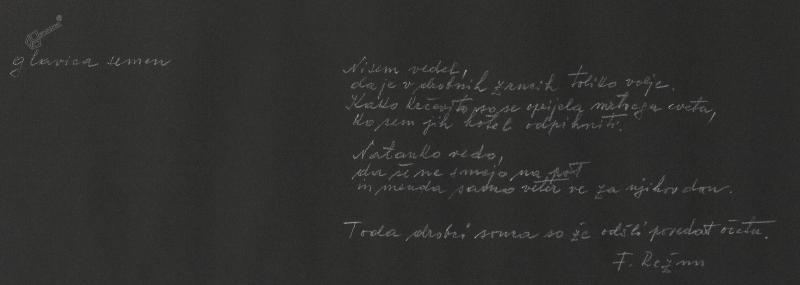 glavica semen
Nisem vedel,
da je v drobnih zrncih toliko volje.
Kako krčevito so se oprijela mrtvega cveta,
ko sem jih hotel odpihniti.
Natanko vedo,
da še ne smejo na pot
in menda samo veter ve za njihov dom.
Toda drobci sonca so že odšli povedat očetu.
F. Režun